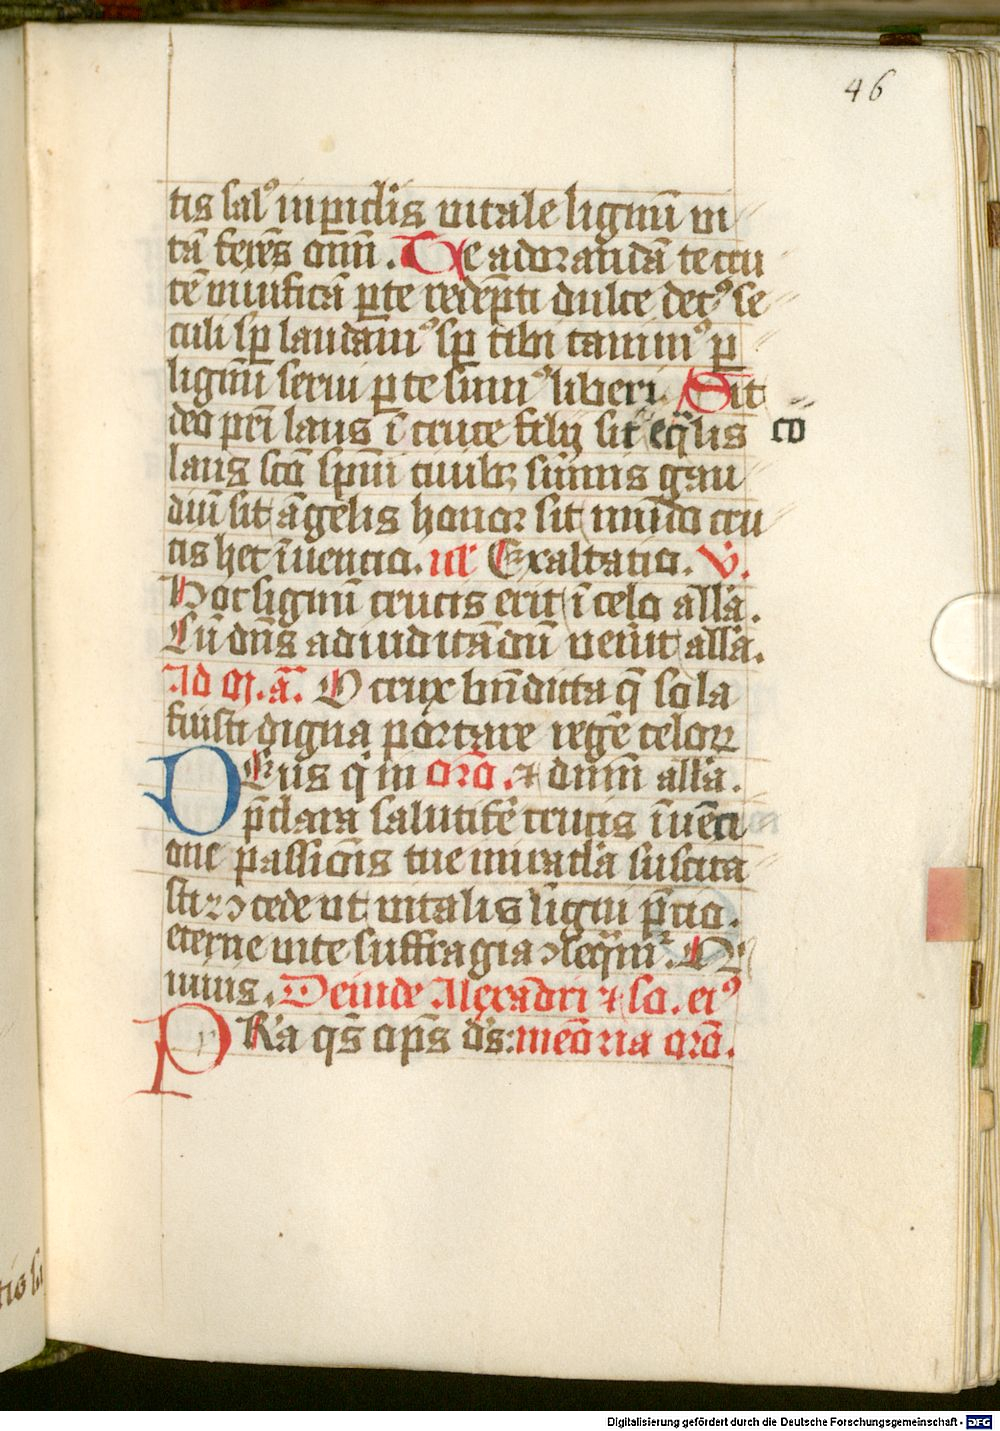 46
tis salꝰ in piclis vitale lignū vi
tā ferēs omī̄. Te adorandā te cru
cē viuificā ꝑ te redēpti dulce decꝰ se
culi sꝑ laudamꝰ sꝑ tibi canimꝰ ꝑ
lignū serui ꝑ te sumꝰ liberi. Sit
deo pr̄i laus ī cruce filij sit eq̄lis
co
laus sc̄o sp̄ui ciuibꝫ sūmis gau
diū sit āgelis honor sit mūdo cru
cis hec īuencio. ul̕ Exaltatio. V.
Hoc signū crucis erit ī celo all̄a.
Cū dn̄s ad iudicādū uenit all̄a.
Ad M. añ. O crux bn̄dicta q̄ sola
fuisti digna portare regē celoꝝ
Deus q̕ in oro. ⁊ dnim̄ all̄a.
p̄clara salutifē crucis īuēci
one passiōis tue miracl̄a suscita
sti ꝯcede ut vitalis ligni p̄cio.
eterne vite suffragia ꝯseq̄mꝰ. Q̕
viuis. Deinde Alexādri ⁊ so. eiꝰ
PRa qs̄ op̄s ds̄: memoria oro.
tio sa
Digitalisierung gefördert durch die Deutsche Forschungsgemeinschaft - DFG